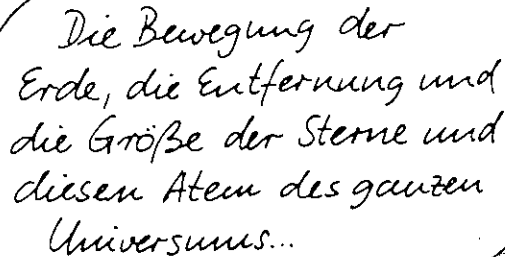 Die Bewegung der
Erde, die Entfernung und
die Größe der Sterne und
diesen Atem des ganzen
Universums...